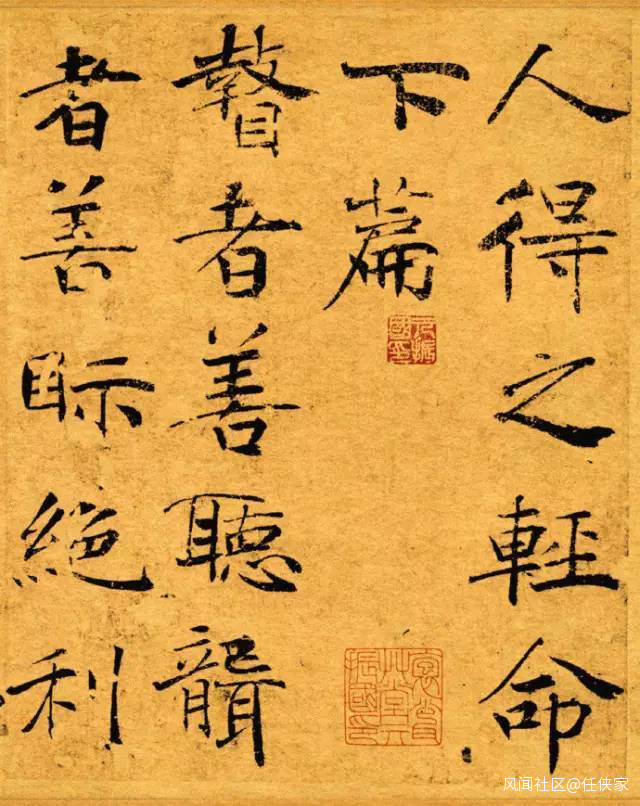 人得之輕命
下篇
瞽者善聽聾
者善眎絕利
风闻社区@任侠家